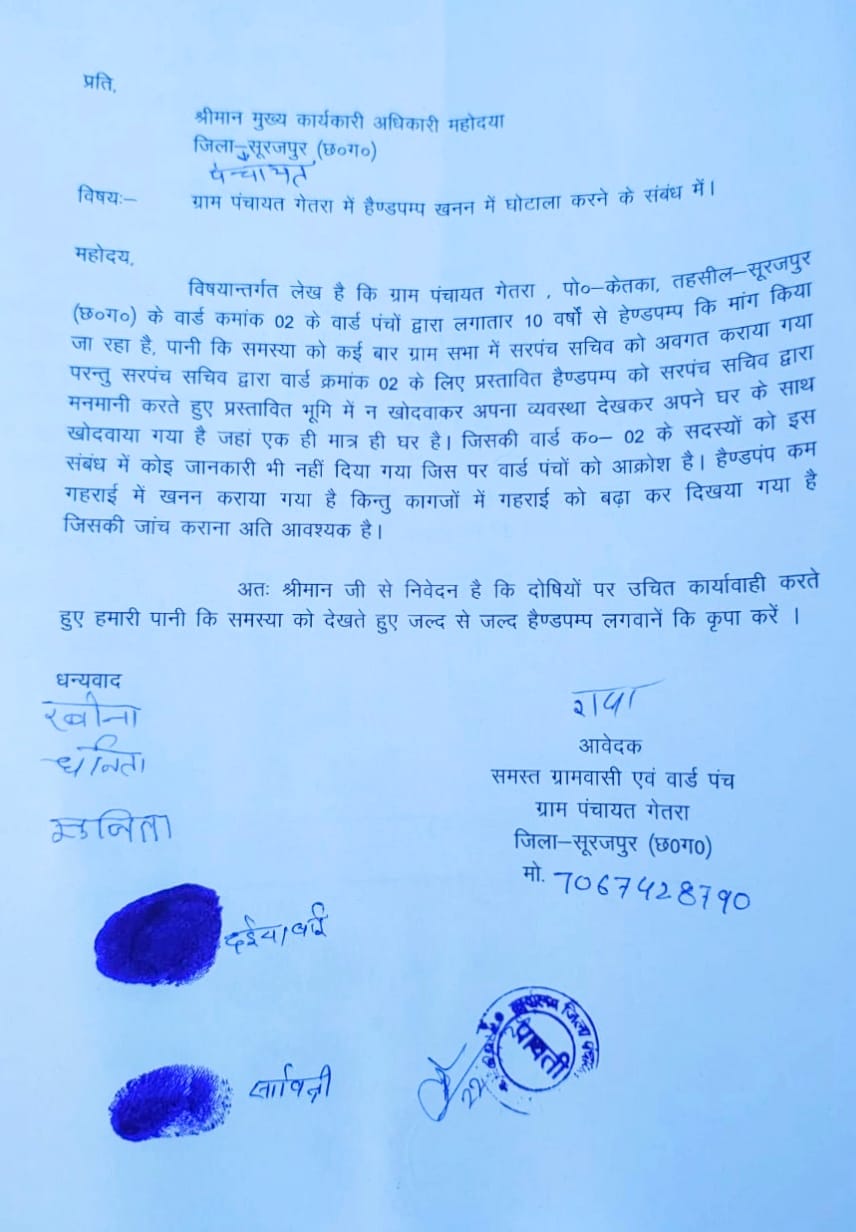 प्रति,
श्रीमान मुख्य कार्यकारी अधिकारी महोदया
जिला–सूरजपुर (छ०ग०)
पंचायत
विषयः– ग्राम पंचायत गेतरा में हैण्डपम्प खनन में घोटाला करने के संबंध में।
महोदय,
विषयान्तर्गत लेख है कि ग्राम पंचायत गेतरा , पो०–केतका, तहसील–सूरजपुर
(छ०ग०) के वार्ड कमांक 02 के वार्ड पंचों द्वारा लगातार 10 वर्षों से हेण्डपम्प कि मांग किया
जा रहा है, पानी कि समस्या को कई बार ग्राम सभा में सरपंच सचिव को अवगत कराया गया
परन्तु सरपंच सचिव द्वारा वार्ड क्रमांक 02 के लिए प्रस्तावित हैण्डपम्प को सरपंच सचिव द्वारा
मनमानी करते हुए प्रस्तावित भूमि में न खोदवाकर अपना व्यवस्था देखकर अपने घर के साथ
खोदवाया गया है जहां एक ही मात्र ही घर है। जिसकी वार्ड क०– 02 के सदस्यों को इस
संबंध में कोइ जानकारी भी नहीं दिया गया जिस पर वार्ड पंचों को आक्रोश है। हैण्डपंप कम
गहराई में खनन कराया गया है किन्तु कागजों में गहराई को बढ़ा कर दिखया गया है
जिसकी जांच कराना अति आवश्यक है।
अतः श्रीमान जी से निवेदन है कि दोषियों पर उचित कार्यावाही करते
हुए हमारी पानी कि समस्या को देखते हुए जल्द से जल्द हैण्डपम्प लगवानें कि कृपा करें ।
धन्यवाद
रबीना
धनिता
सुनिता
दईया बाई
सावित्री
आवेदक
समस्त ग्रामवासी एवं वार्ड पंच
ग्राम पंचायत गेतरा
जिला–सूरजपुर (छ०ग०)
मो. 7067428790
जिला
पावती